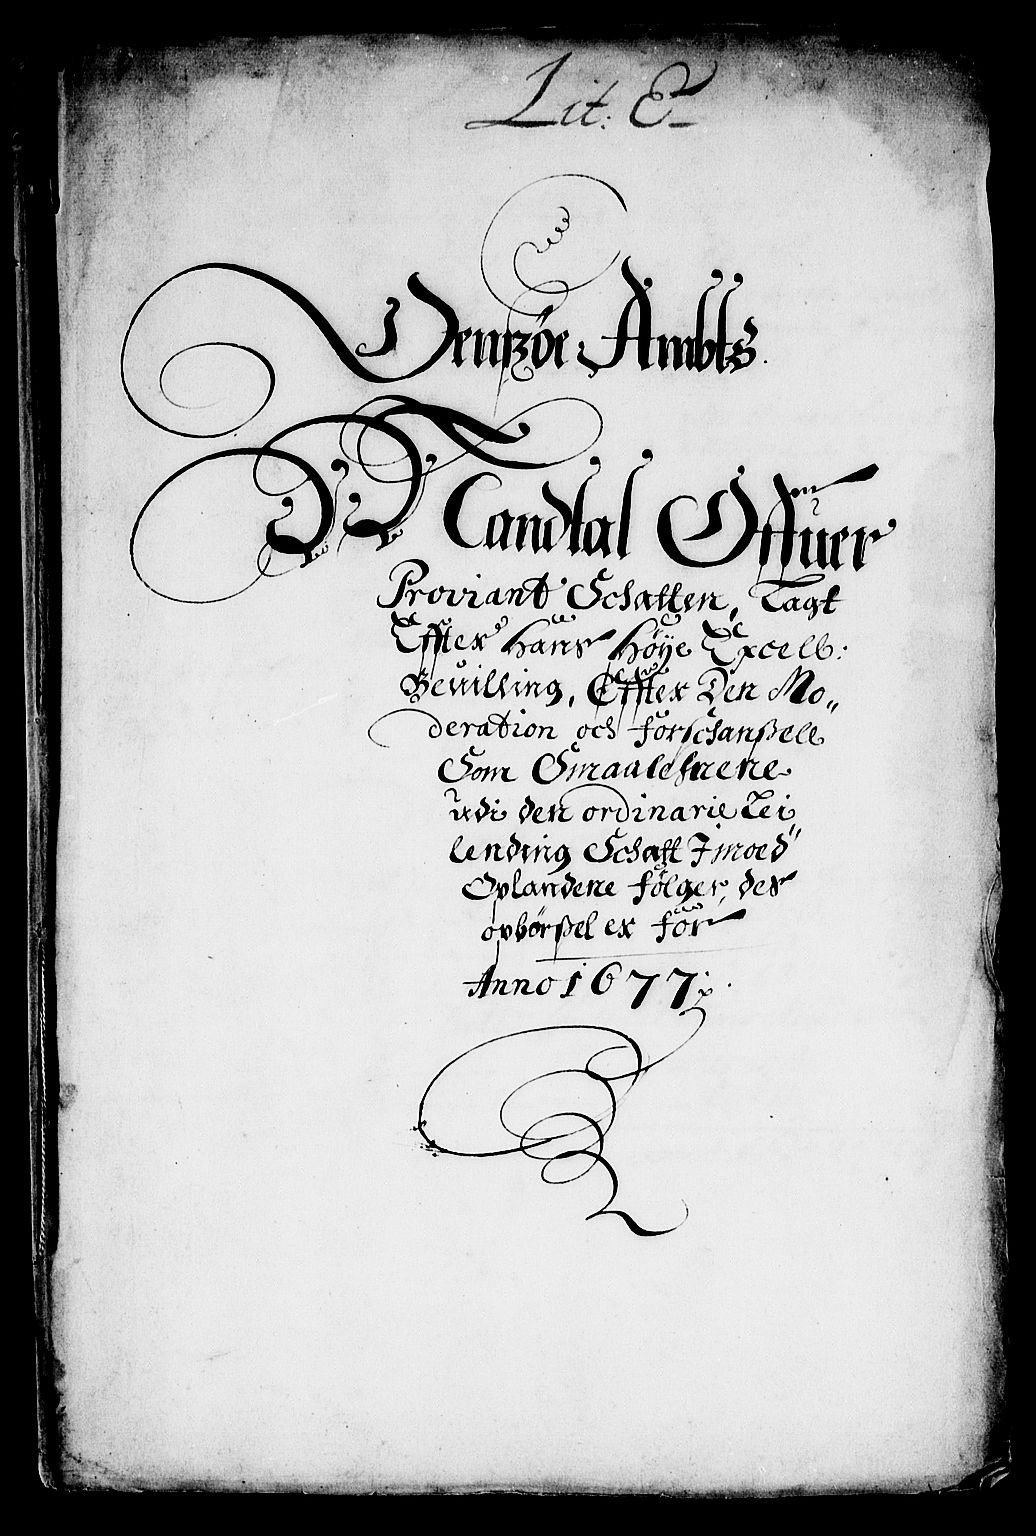 Lit: E
Jemßøe Ambts.
Mandtal Offuer
Proviant Schatten, Tagt
Effter hans høÿe Excell:
Beuilling, Effter Den Mo„
deration och forschanßell
Som Smaalehnene
udi den ordinarie Lei
lending Schatt Jmoed
Oplandene følger, der
opbörßel er for
Anno 1677